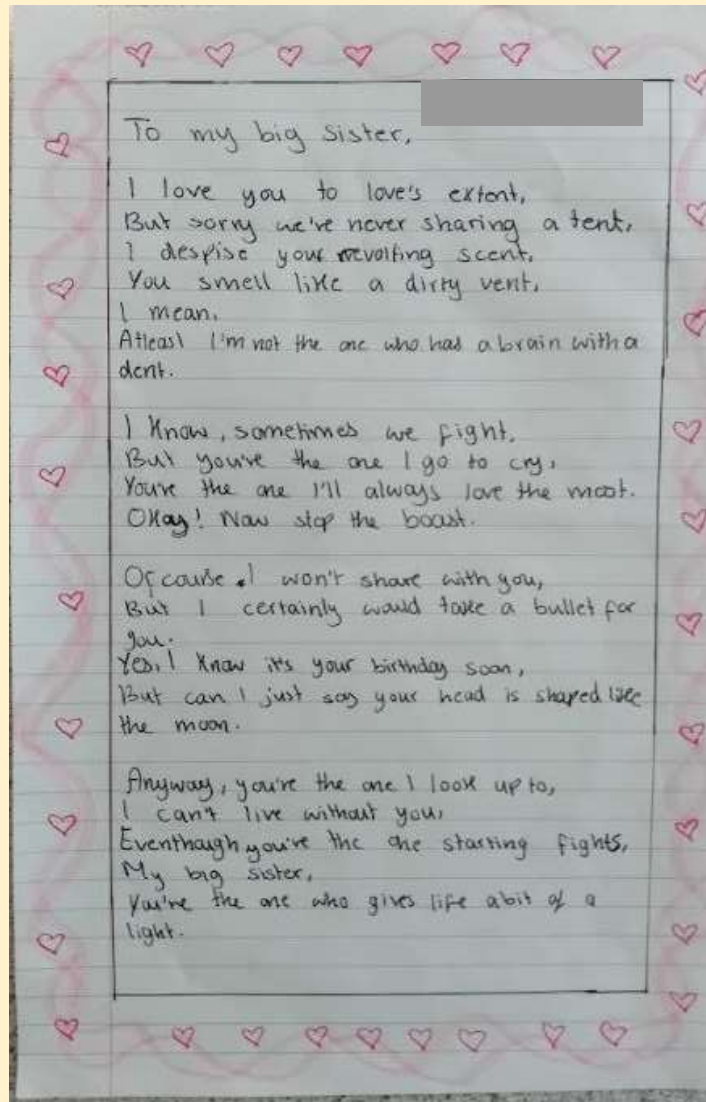 To my big sister,
I love you to love's extent,
But sorry we're never sharing a tent,
I despise your revolting scent,
You smell like a dirty vent,
I mean,
Atleast I'm not the one who has a brain with a
dent.
I Know, sometimes we fight,
But you're the one I go to cry,
You're the one I'll always love the most.
OKay! Now stop the boast.
Of cause. I won't share with you,
But I certainly would take a bullet for
you.
Yes, I Know it's your birthday soon,
But can I just say your head is shaped like
the moon.
Anyway, you're the one I look up to,
I can't live without you,
Eventhough you're the one starting fights,
My big sister,
You're the one who gives life abit of a
light.